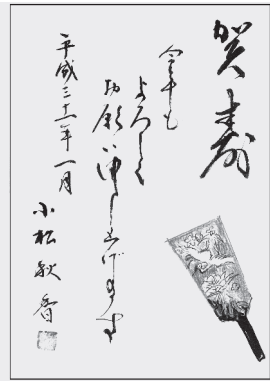 賀寿
今年も
よろしく
お願い申し上げます
平成三十一年一月
小松秋香